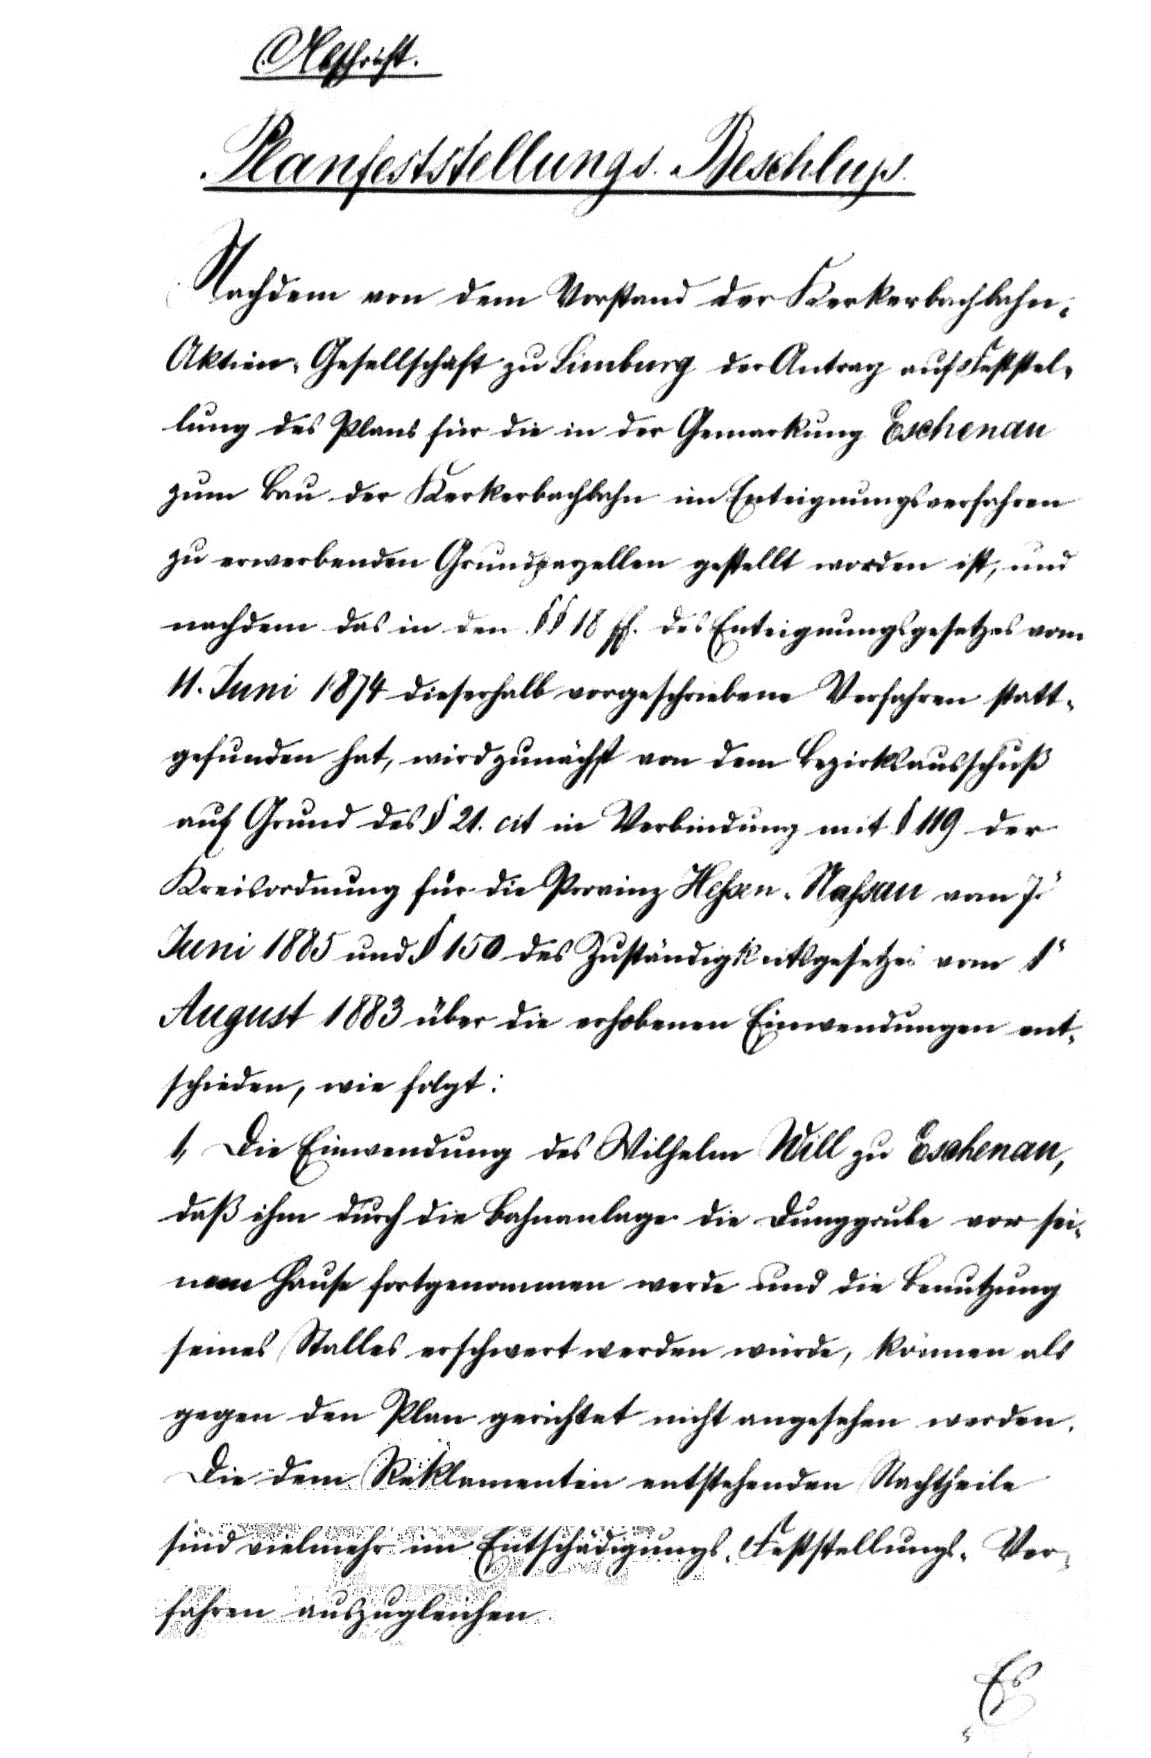 Abschrift.
Planfeststellungs-Beschluss.
Nachdem von dem Vorstand der Kerkerbachbahn-
Aktien-Gesellschaft zu Limburg der Antrag auf Feststel-
lung des Plans für die in der Gemarkung Eschenau
zum Bau der Kerkerbachbahn im Enteignungsverfahren
zu erwerbenden Grundparzellen gestellt worden ist, und
nachdem das in den §§ 18 ff. des Enteignungsgesetzes vom
11. Juni 1874 dieserhalb vorgeschriebene Verfahren statt-
gefunden hat, wird zunächst von dem Bezirksausschuß
auf Grund des § 21. cit in Verbindung mit § 119 der
Kreisordnung für die Provinz Hessen-Nassau vom 7.
Juni 1885 und § 150 des Zuständigkeitsgesetzes vom 1
August 1883 über die erhobenen Einwendungen ent-
schieden, wie folgt:
1, Die Einwendung des Wilhelm Will zu Eschenau,
daß ihm durch die Bahnanlage die Dunggrube vor sei-
nem Hause fortgenommen werde und die Benutzung
seines Stalles erschwert werden würde, können als
gegen den Plan gerichtet nicht angesehen werden.
Die dem Reklamenten entstehenden Nachtheile
sind vielmehr im Entschädigungs-Feststellungs-Ver-
fahren auszugleichen.
Es